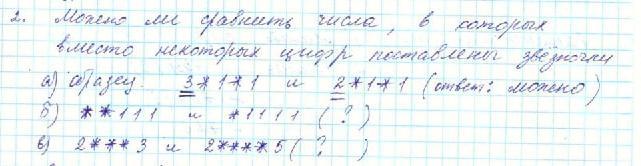 2. Можно ли сравнить числа, в которых
вместо некоторых цифр поставлены звёздочки
а) образец. 3*1*1 и 2*1*1 (ответ: можно)
б) **111 и *1111 (?)
в) 2***3 и 2****5 (? )